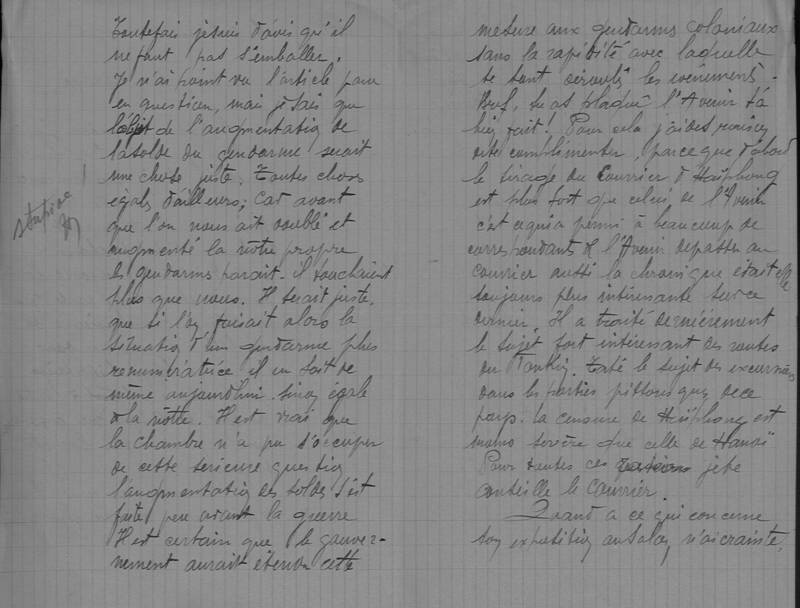 Toutefois je suis d'avis qu'il
ne faut pas s'emballer.
Je n'ai point vu l'article paru
en question, mais je sais que
l'objet de l'augmentation de
la solde du gendarme serait
une chose juste. Toutes choses
égales d'ailleurs; car avant
que l'on nous ait doublé et
augmenté la nôtre propre
les gendarmes parait-il touchaient
plus que nous. Il serait juste,
que si l'on faisait alors la
situation d'un gendarme plus
rénumératrice il en soit de
même aujourd'hui. sinon égale
à la nôtre. Il est vrai que
la chambre n'a pu s'occuper
de cette sérieuse question
l'augmentation des soldes s'est
faite peu avant la guerre
Il est certain que le gouver-
nement aurait étendu cette
mesure aux gendarmes coloniaux
sans la rapidité avec laquelle
se sont déroulé les événements.
Bref, tu as plaqué l'Avenir t'a
bien fait! Pour cela j'ai des raisons
de te complimenter, parce que d'abord
le tirage du Courrier d'Haïphong
est plus fort que celui de l'Avenir
c'est ce qui a permi à beaucoup de
correspondants de l'Avenir de passer au
courrier aussi la chronique était elle
toujours plus intéressante sur ce
dernier. Il a traité dernièrement
le sujet fort intéressant des routes
du Tonkin. Taté le sujet des excursions
dans les parties pittoresques de ce
pays. La censure de Haïphong est
moins sévère que celle de Hanoï
Pour toutes ces raisons je te
conseille le Courrier.
Quand a ce qui concerne
ton expédition au Salon, n'ai crainte,